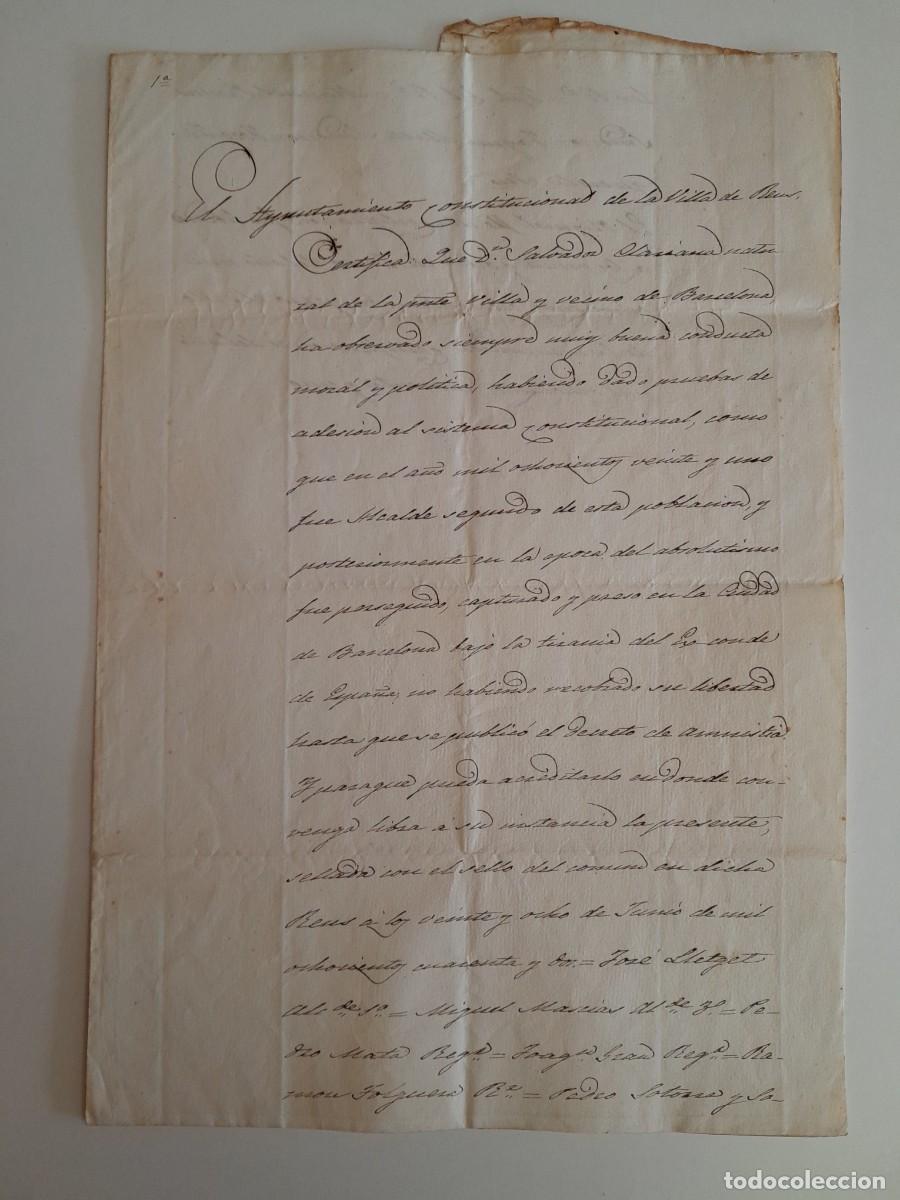 1ª
El Ayuntamiento Constitucional de la Villa de Reus.
Certifica: Que Dn. Salvador Clariana natu
ral de la pnte. Villa y vecino de Barcelona,
ha observado siempre muy buena conducta
moral y politica, habiendo dado pruebas de
adesion al sistema Constitucional, como
que en el año mil ochocientos veinte y uno
fue Alcalde segundo de esta poblacion, y
posteriormente en la epoca del absolutismo
fue perseguido, capturado y preso en la Ciudad
de Barcelona bajo la tirania del Ex conde
de España, no habiendo recobrado su libertad
hasta que se publicó el decreto de amnistia.
Y paraque pueda acreditarlo en donde con-
venga libra á su instancia la presente,
sellada con el sello del comun en dicha
Reus á los veinte y ocho de Junio de mil
ochocientos cuarenta y dos.= José Lletget
Alcde. 1º.= Miguel Macias Alde. 3º.= Pe-
dro Mata Regr.= Joaqn. Grau Regr.= Ra-
mon Folguera Rr.= Pedro Sotorra y Sa-
todocoleccion